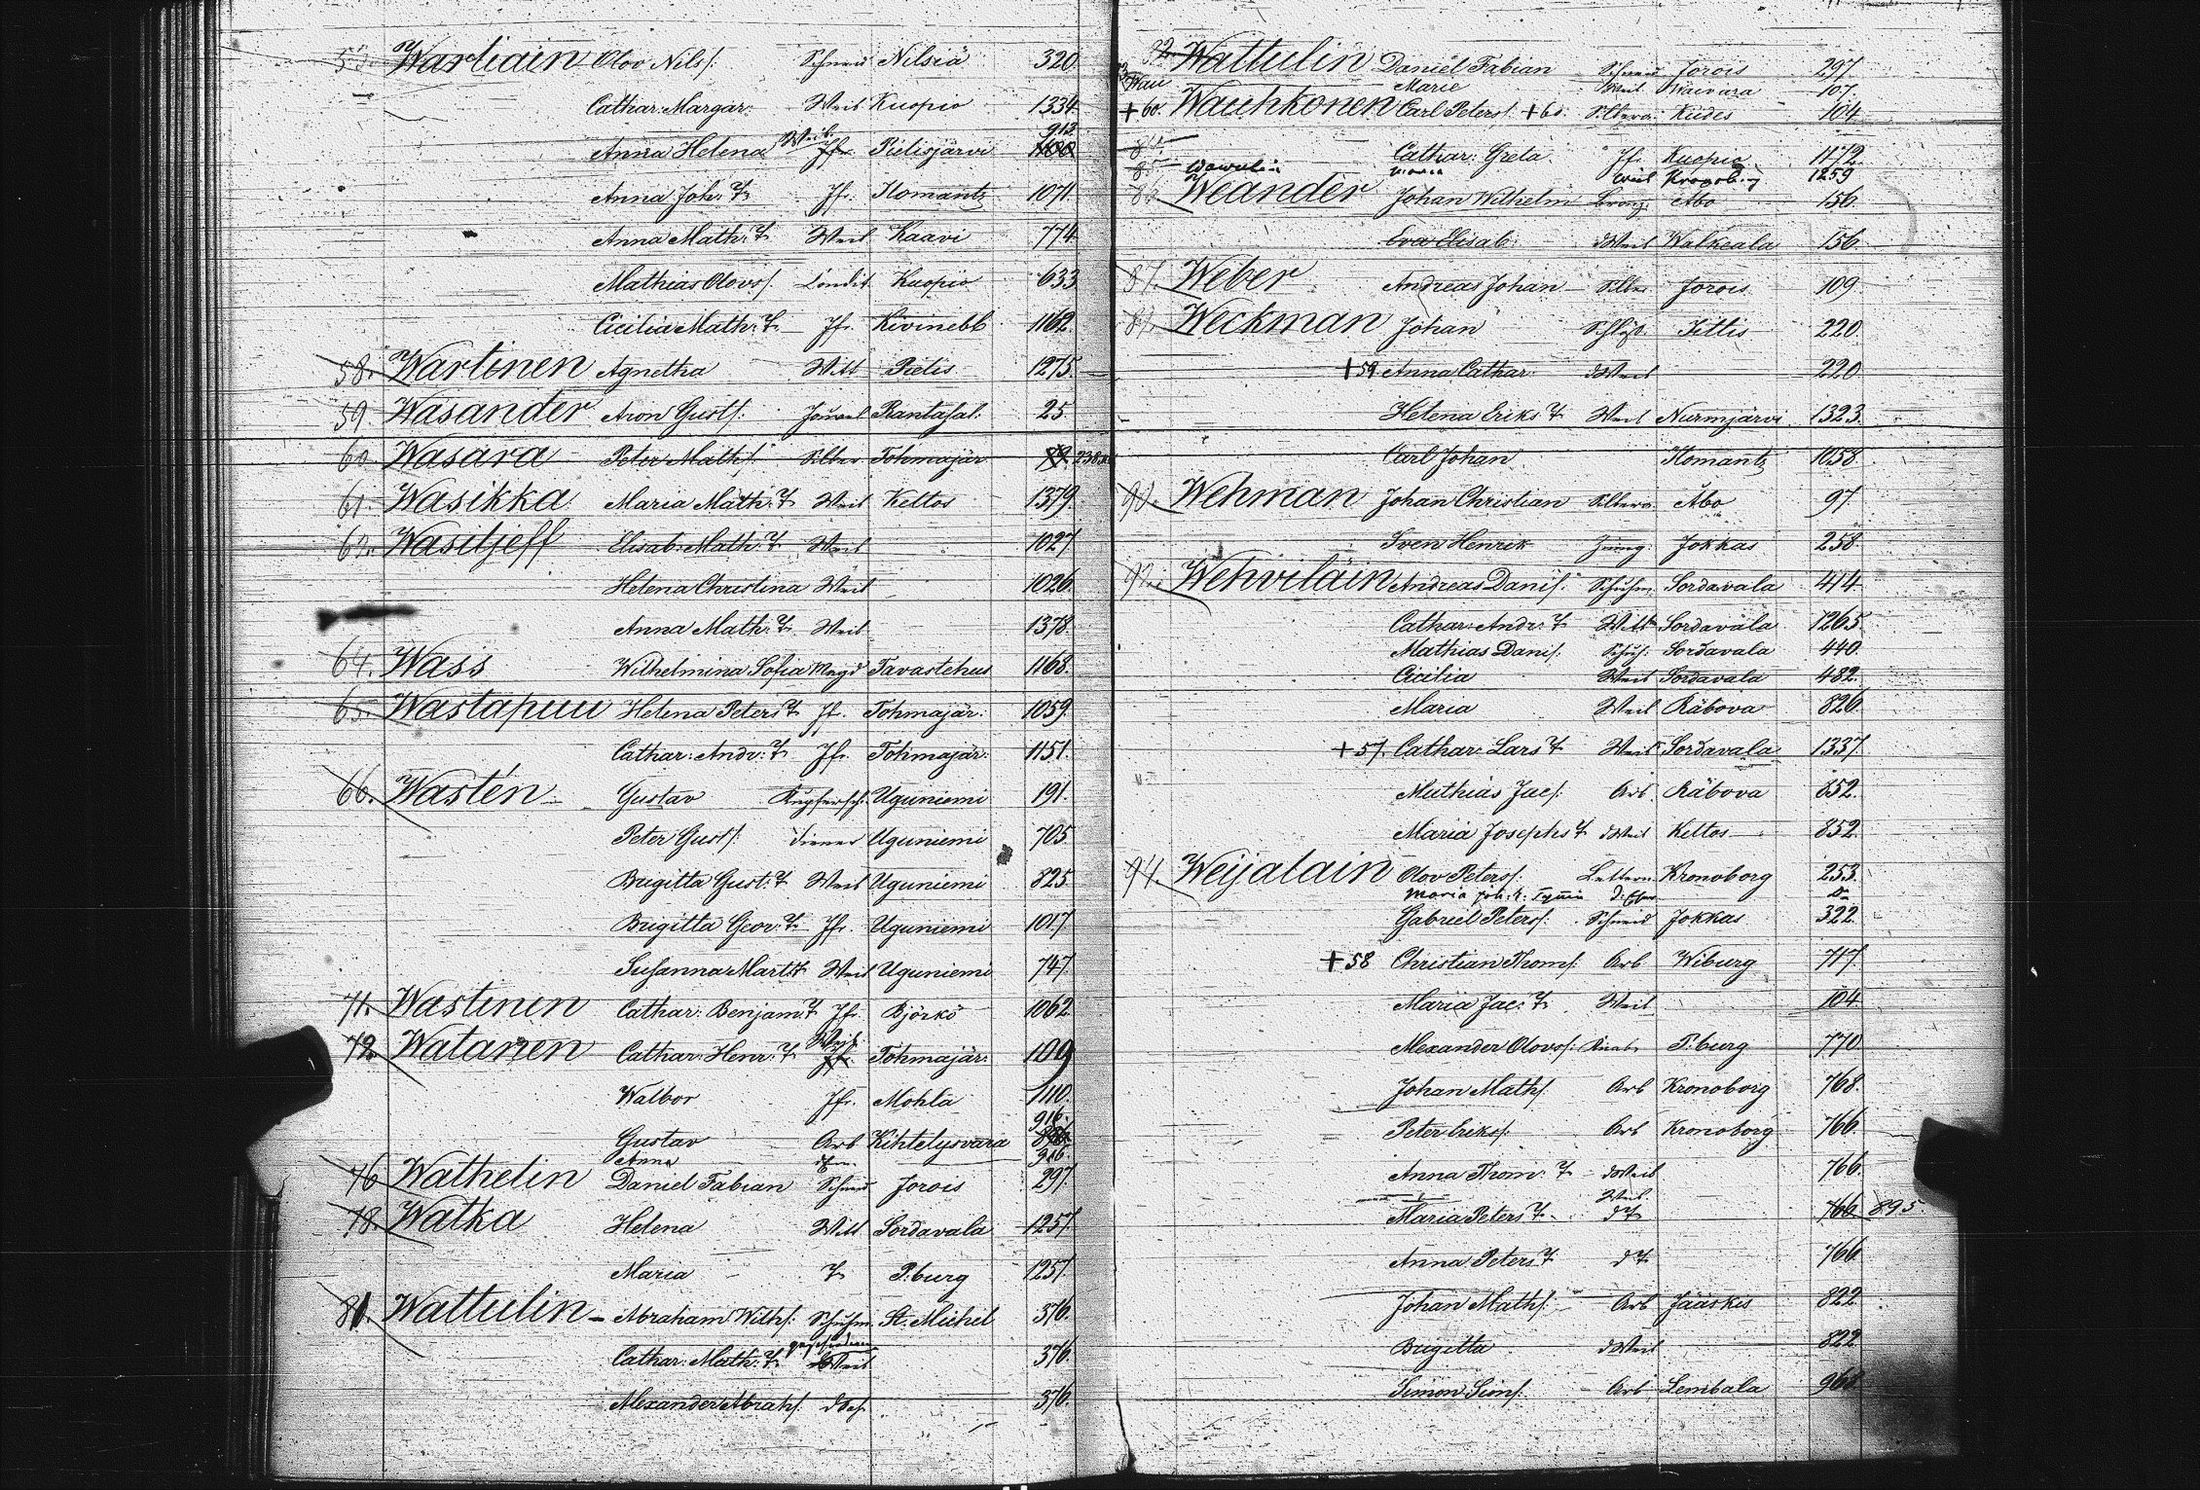 Wartiain Olov Nilss: Schneid Nilsiä 320
Cathar: Margar: Weib Kuopio 1334
Weib 913
Anna Helena Jfr. Pielisjärvi
Anna Joh: T. Jfr. Ilomantz 1071.
Anna Math: T. Weib Kaavi 774
Mathias Olovs. Kuopio 633
Cicilia Math: T. Jfr. Kivinebb 1162.
58. Wartinen Agnetha Witt Pielis 1275.
59. Wasander Aron Gusts: Rantasal. 25.
60. Wasara Peter Maths: Silber Tohmajär 238
61. Wasikka Maria Math: T. Weib Keltos 1379.
62. Wasiljeff Elisab: Math: T. Weib 1027.
Helena Christina Weib 1026.
Anna Math: T. Weib 1378.
64. Wass Wilhelmina Sofia Magd Tavastehus 1168.
65. Wastapuu Helena Peters T. Jf. Tohmajär: 1059.
Cathar: Andr: T. Jfr. Tohmajär: 1151.
66. Wastén Gustav Kupfersch: Uguniemi 191.
Peter Gusts: Diener Uguniemi 705.
Brigitta Gust: T. Weib Uguniemi 825.
Brigitta Geor: T. Jfr. Uguniemi 1017.
Susanna Mart: T. Weib Uguniemi 747.
71. Wastinen Cathar: Benjam: T. Jfr. Björkö 1062.
Weib
72. Watanen Cathar: Henr: T. Jfr. Tohmajär: 109
Walbor Jfr. Mohla 1110.
916.
Gustav Arb Kihtelysvara
Anna 916.
76 Wathelin Daniel Fabian Schneid Jorois 297.
78. Watka Helena Witt Sordavala 1257.
Maria T. P.burg 1257.
81. Wattulin Abraham Wilhs: Schuhm. St. Michel 376.
geschiedene
Cathar: Math: T. Weib 376.
Alexander Abrahs. 376.
82. Wattulin Daniel Fabian Schneid Jorois 297.
Marie Weib Waivara 107.
+60. Wauhkonen Carl Peters. +60. Silbera. Kides 104
84. Cathar: Greta Jfr. Kuopio 1172.
85. Maria Weib Kronob. 1259
Weander Johan Wilhelm Bronz. Abo 156.
Eva Elisab: dWeib Walkeala 156
87. Weber Andreas Johan Silber Jorois 109
Weckman Johan Kittis 220.
+59 Anna Cathar: dWeib 220
Helena Eriks T. Weib Nurmjärvi 1323.
Carl Johan Ilomantz 1058
90. Wehman Johan Christian Silbera. Åbo 97.
Sven Henrik Jokkas 258.
92. Wehviläin Andreas Danis: Schuhm. Sordavala 414.
Cathar: Andr: T. Witt Sordavala 1265
Mathias Danis. Schuh: Sordavala 440.
Cicilia Weib Sordavala 482.
Maria Weib Räbova 826
+57. Cathar: Lars T. Weib Sordavala 1337.
Mathias Jacs: Arb. Räbova 852.
Maria Josephs T. dWeib Keltos 852.
94. Weijalain Olov Peters. Kronoborg 253.
Maria Joh: T.
Gabriel Peters: Schneid Jokkas 322
+58 Christian Thoms. Arb Wiburg 717.
Maria Jac: T. Weib 104.
Alexander Olovs: Knabe P.burg 770
Johan Maths. Arb Kronoborg 768.
Peter Eriks. Arb Kronoborg 766.
Anna Thom: T. dWeib 766.
Weib
Maria Peters T. dT. 766 895.
Anna Peters T. dT. 766
Johan Maths: Arb Jääskis 822
Brigitta dWeib 822
Simon Sions. Arb Lembala